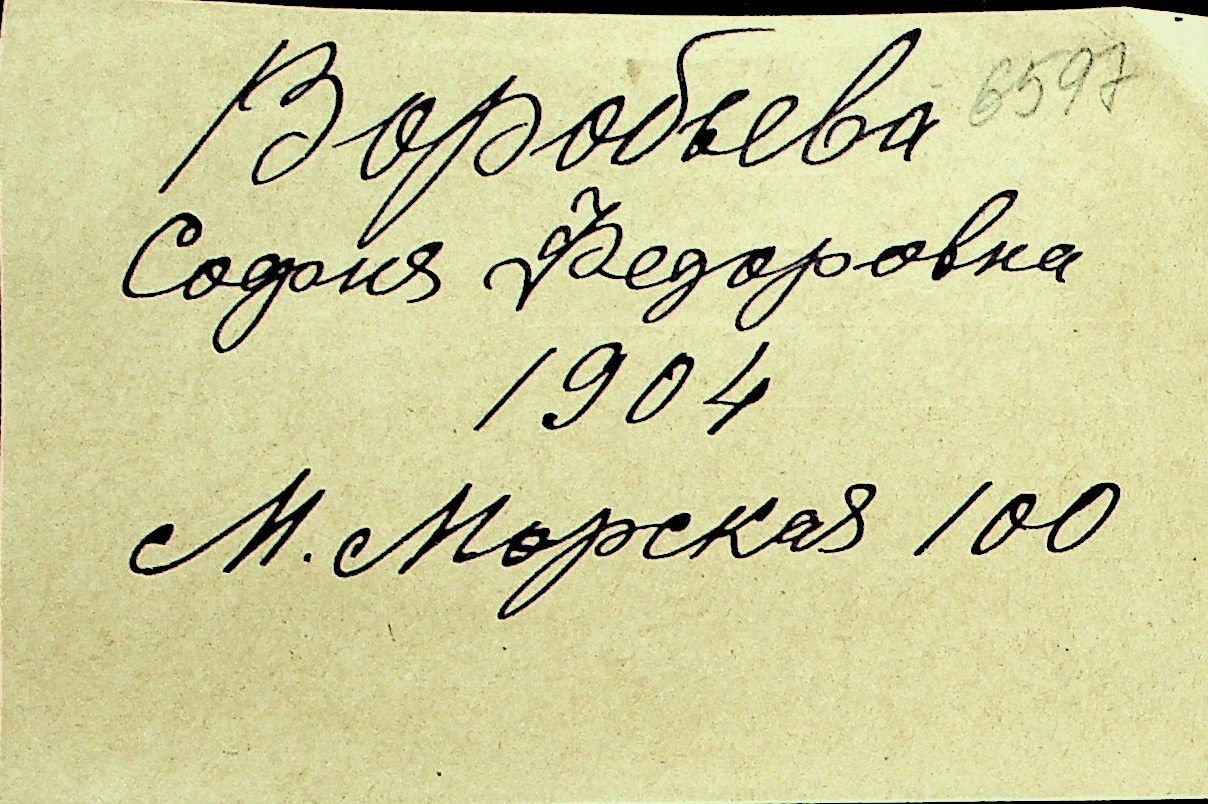 Воробьева 6597
София Федоровна
1904
М. Морская 100